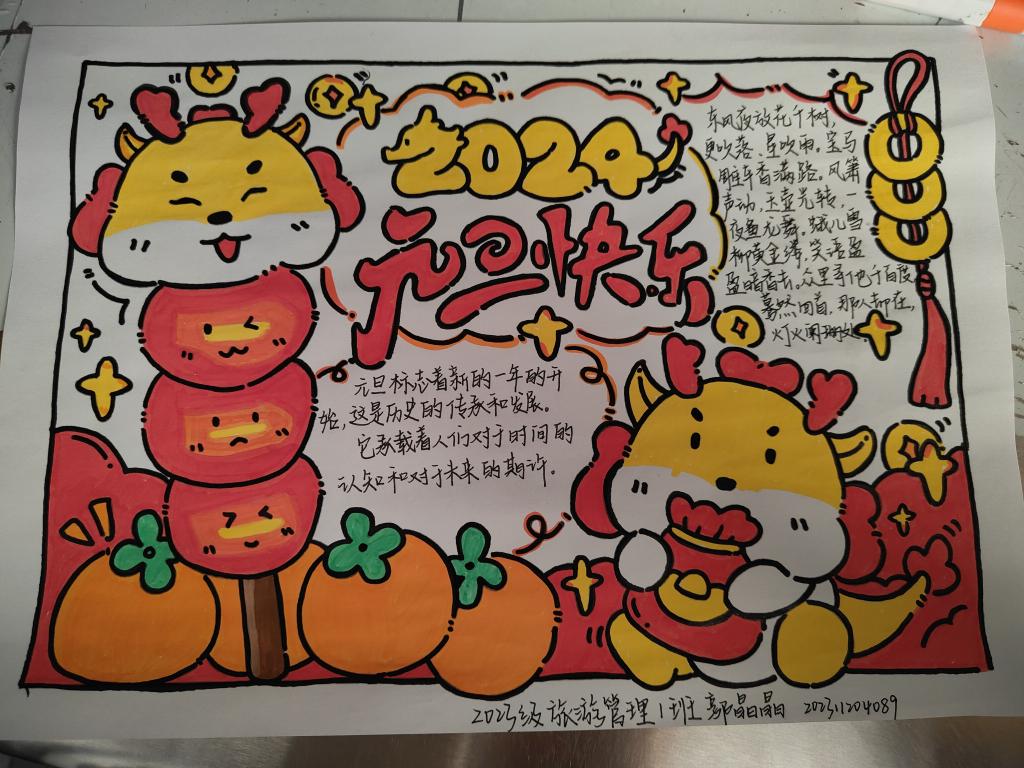 2024
元旦快乐
东风夜放花千树，
更吹落、星如雨。宝马
雕车香满路。风箫
声动，玉壶光转，一
夜鱼龙舞。蛾儿雪
柳黄金缕，笑语盈
盈暗香去。众里寻他千百度
蓦然回首，那人却在，
灯火阑珊处
元旦标志着新的一年的开
始，这是历史的传承和发展。
它承载着人们对于时间的
认知和对于未来的期许。
2023级旅游管理1班郭晶晶 202311204089